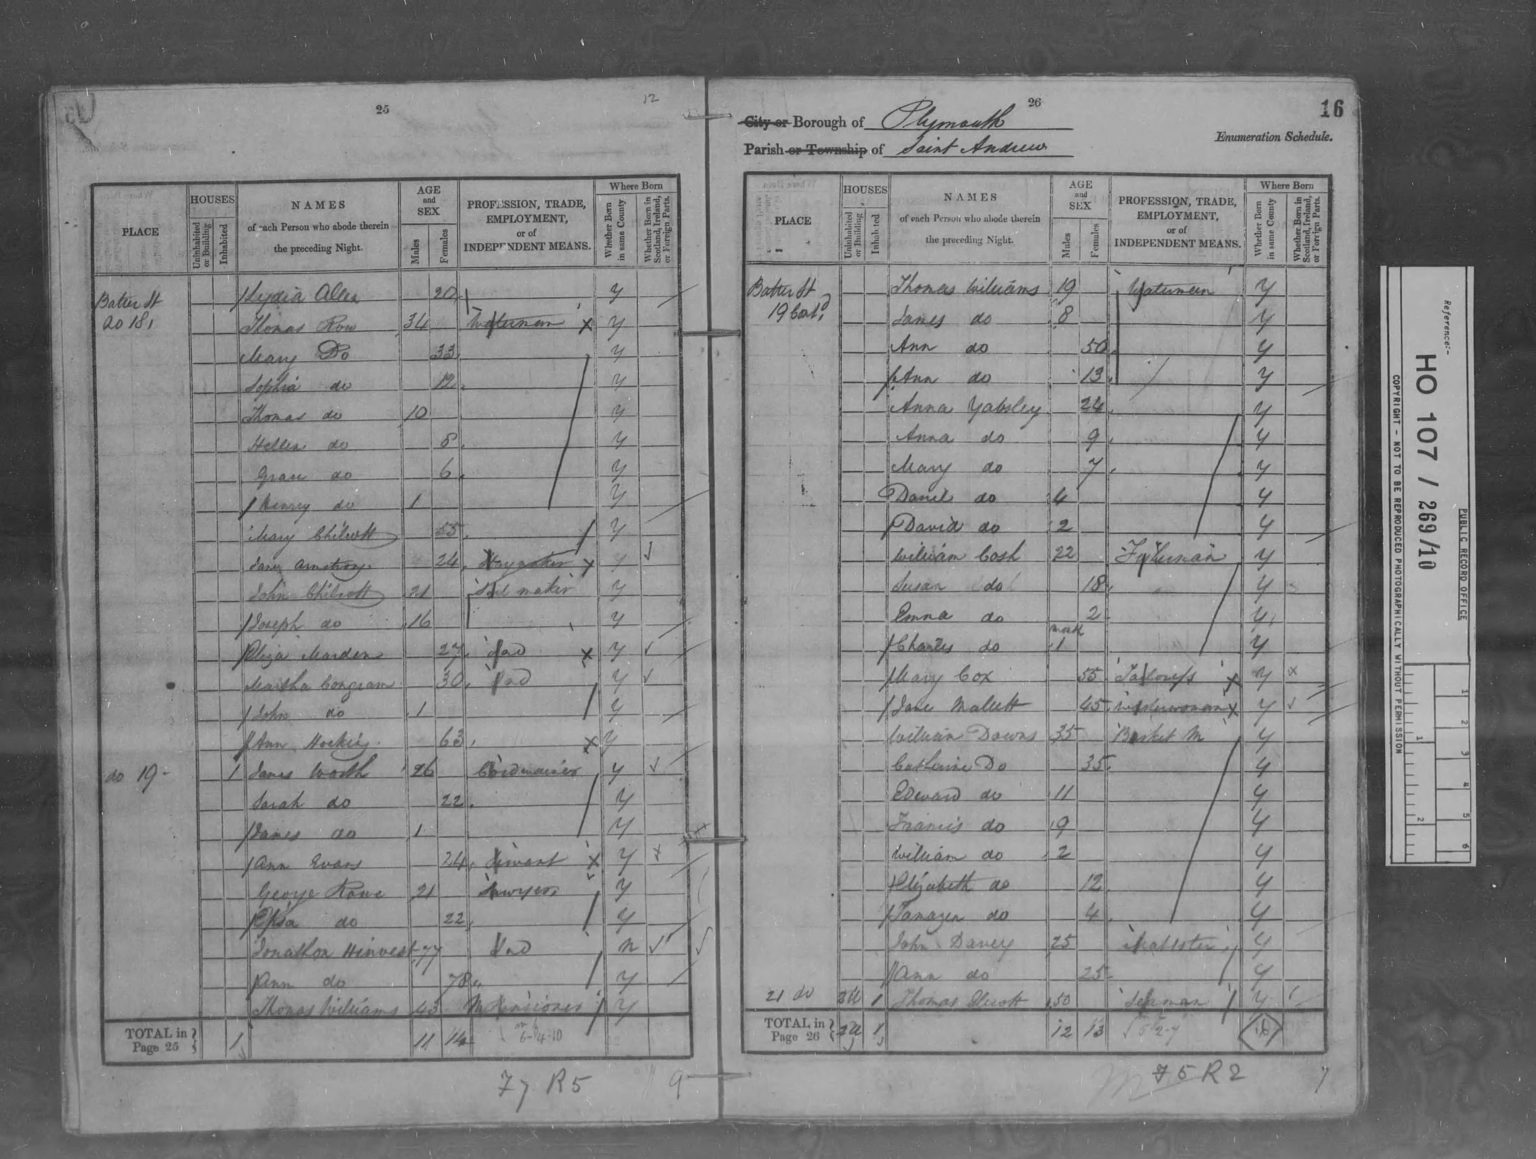 25
12
PLACE
HOUSES
Uninhabited or Building
Inhabited
NAMES
of each Person who abode therein
the preceding Night.
AGE
and
SEX
Males
Females
PROFESSION, TRADE,
EMPLOYMENT,
or of
INDEPENDENT MEANS.
Where Born
Whether Born in same County
Whether Born in Scotland, Ireland, or Foreign Parts.
Batter St Lydia 20 y
Thomas Row 34 Waterman y
Mary Do 33 y
Sophia do 12 y
Thomas do 10 y
do 8 y
Grace do 6 y
Henry do 1 y
Mary Chilcott 55 y
Jane Armstrong 24 y
John Chilcott 21 maker y
Joseph do 16 y
Eliza Marden 27 Ind y
Martha Congram 30 Ind y
John do 1 y
Ann Hocking 63 y
do 19 1 James Worth 26 Cordwainer y
Sarah do 22 y
James do 1 y
Ann Evans 24 Servant y
George Rowe 21 Sawyer y
Eliza do 22 y
Jonathon 77 Ind n
Ann do 78 y
Thomas Williams 45 y
TOTAL in Page 25 1 11 14
6-4-10
77 R5
9
26
16
City or Borough of Plymouth
Enumeration Schedule.
Parish or Township of Saint Andrew
PLACE
HOUSES
Uninhabited or Building
Inhabited
NAMES
of each Person who abode therein
the preceding Night.
AGE
and
SEX
Males
Females
PROFESSION, TRADE,
EMPLOYMENT,
or of
INDEPENDENT MEANS.
Where Born
Whether Born in same County
Whether Born in Scotland, Ireland, or Foreign Parts.
Batter St Thomas Williams 19 Waterman y
19 Contd James do 8 y
Ann do 50 y
Ann do 13 y
Anna Yabsley 24 y
Anna do 9 y
Mary do 7 y
Daniel do 4 y
David do 2 y
William Cosh 22 Fisherman y
Susan do 18 y
Emma do 2 y
Charles do 1 y
Mary Cox 55 y
Jane Mallett 45 y
William Downs 35 Basket M y
Catherine Do 35 y
Edward do 11 y
Francis do 9 y
William do 2 y
Elizabeth do 12 y
do 4 y
John Davey 25 y
Ann do 25 y
21 do 1 Thomas 50 Seaman y
TOTAL in Page 26 1 12 13
75 R2
7
Reference:-
HO 107 / 269/10
PUBLIC RECORD OFFICE
COPYRIGHT - NOT TO BE REPRODUCED PHOTOGRAPHICALLY WITHOUT PERMISSION
1
2
3
4
5
6
1
2